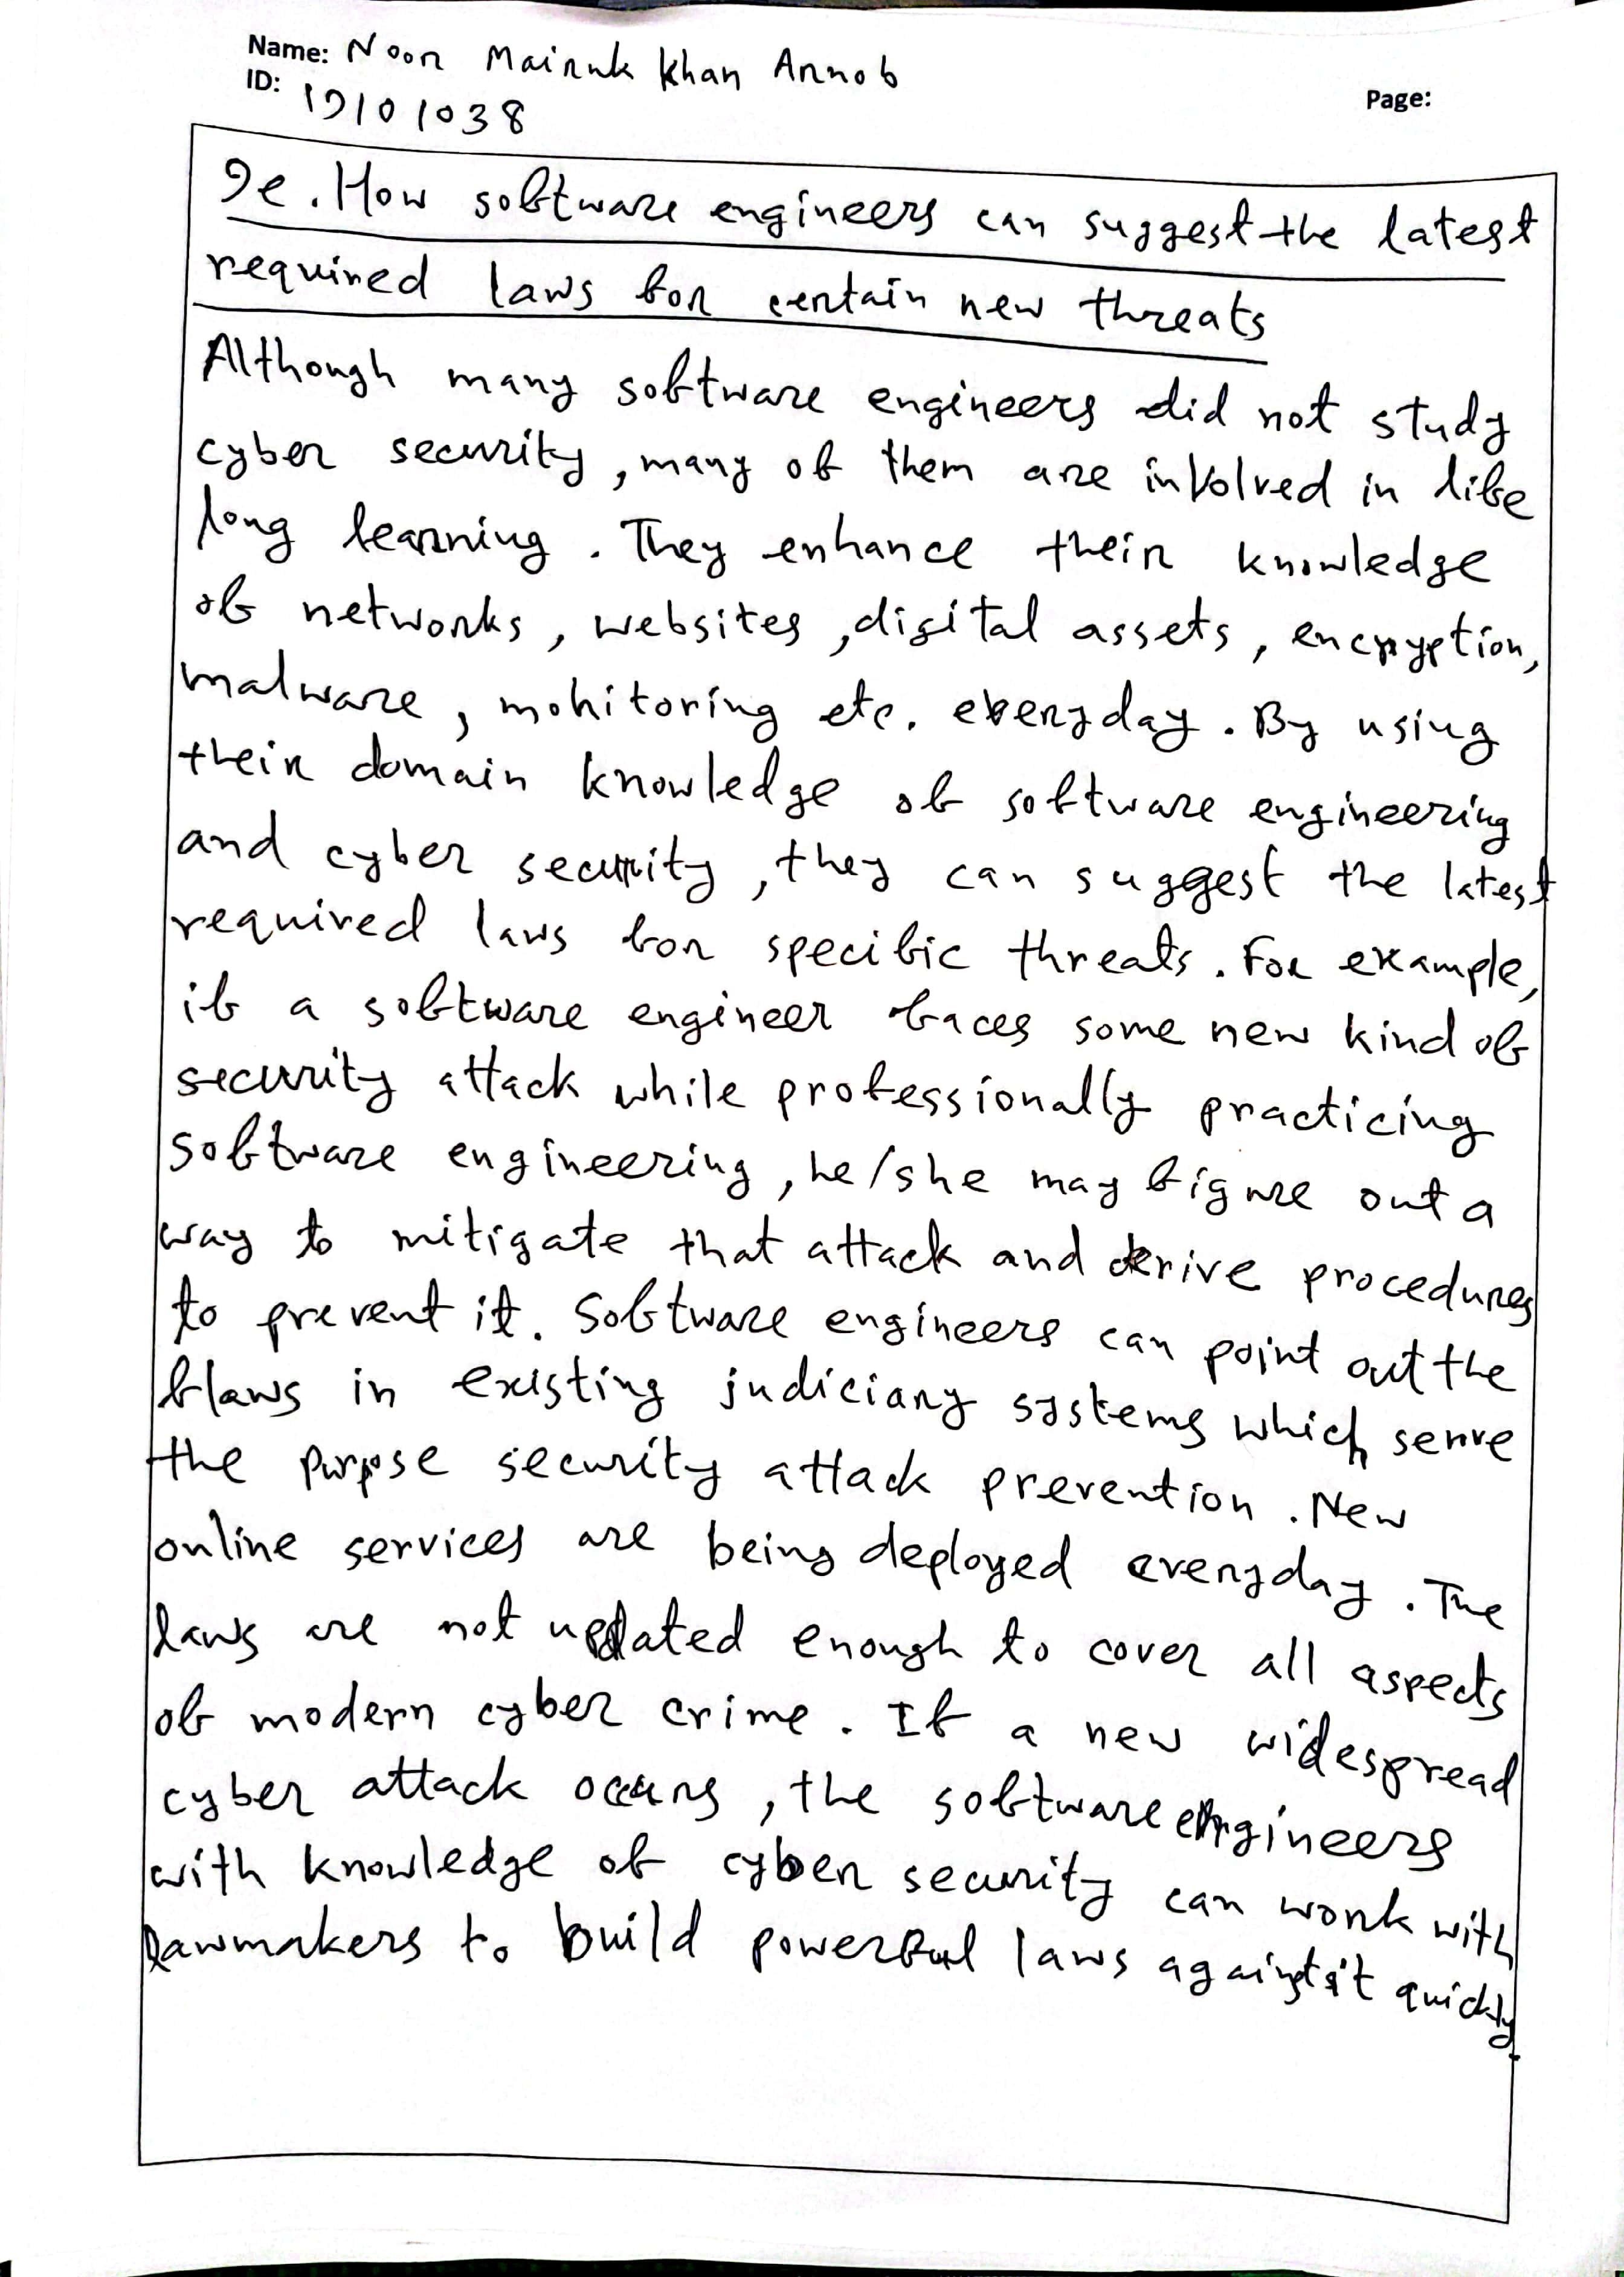 Name: Noor Mairuk Khan Arnob
ID: 19101038
Page:
9e. How software engineers can suggest the latest
required laws for certain new threats
Although many software engineers did not study
cyber security, many of them are involved in life
long learning. They enhance their knowledge
of networks, websites, digital assets, encryption,
malware, monitoring etc. everyday. By using
their domain knowledge of software engineering
and cyber security, they can suggest the latest
required laws for specific threats. For example,
if a software engineer faces some new kind of
security attack while professionally practicing
software engineering, he/she may figure out a
way to mitigate that attack and derive procedures
to prevent it. Software engineers can point out the
flaws in existing judiciary systems which serve
the purpose security attack prevention. New
online services are being deployed everyday. The
laws are not updated enough to cover all aspects
of modern cyber crime. If a new widespread
cyber attack occurs, the software engineers
with knowledge of cyber security can work with
lawmakers to build powerful laws against it quickly.